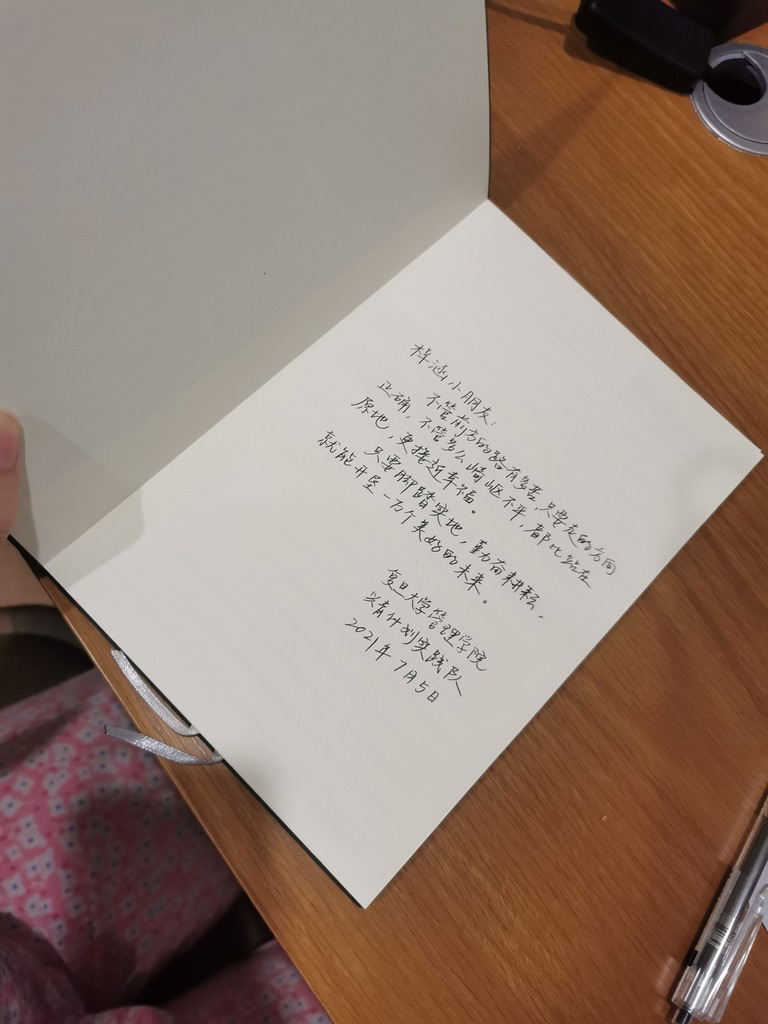 梓涵小朋友：
不管前方的路有多苦，只要走的方向
正确，不管多么崎岖不平，都比站在
原地，更接近幸福。
只要脚踏实地，勤奋耕耘，
就能开垦一方个美好的未来。
复旦大学管理学院
兴青计划实践队
2021年7月5日